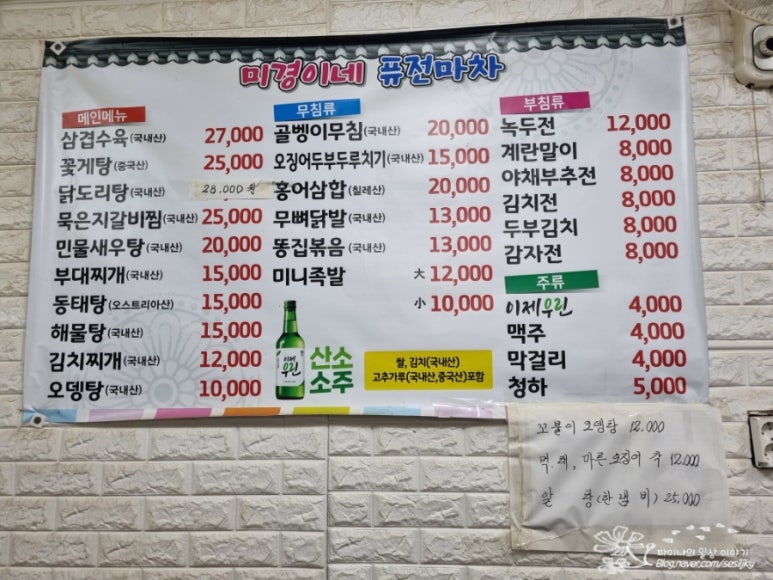 미경이네 퓨전마차
메인메뉴
삼겹수육(국내산) 27,000
꽃게탕(중국산) 25,000
닭도리탕(국내산) 28.000원
묵은지갈비찜(국내산) 25,000
민물새우탕(국내산) 20,000
부대찌개(국내산) 15,000
동태탕(오스트리아산) 15,000
해물탕(국내산) 15,000
김치찌개(국내산) 12,000
오뎅탕(국내산) 10,000
무침류
골벵이무침(국내산) 20,000
오징어두부두루치기(국내산) 15,000
홍어삼합(칠레산) 20,000
무뼈닭발(국내산) 13,000
똥집볶음(국내산) 13,000
미니족발 大 12,000
小 10,000
이제우린
산소
소주
쌀, 김치(국내산)
고추가루(국내산,중국산)포함
부침류
녹두전 12,000
계란말이 8,000
야채부추전 8,000
김치전 8,000
두부김치 8,000
감자전 8,000
주류
이제우린 4,000
맥주 4,000
막걸리 4,000
청하 5,000
꼬불이 오뎅탕 12.000
먹.태, 마른오징어 각 12.000
알 탕(한냄비) 25.000
마이나의 일상 이야기
Blog.naver.com/sesiljky